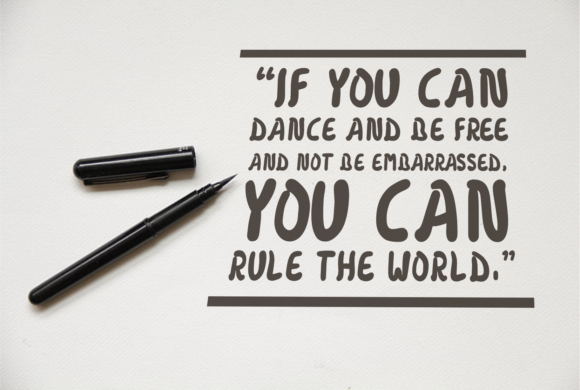 “IF YOU CAN
DANCE AND BE FREE
AND NOT BE EMBARRASSED,
YOU CAN
RULE THE WORLD.”